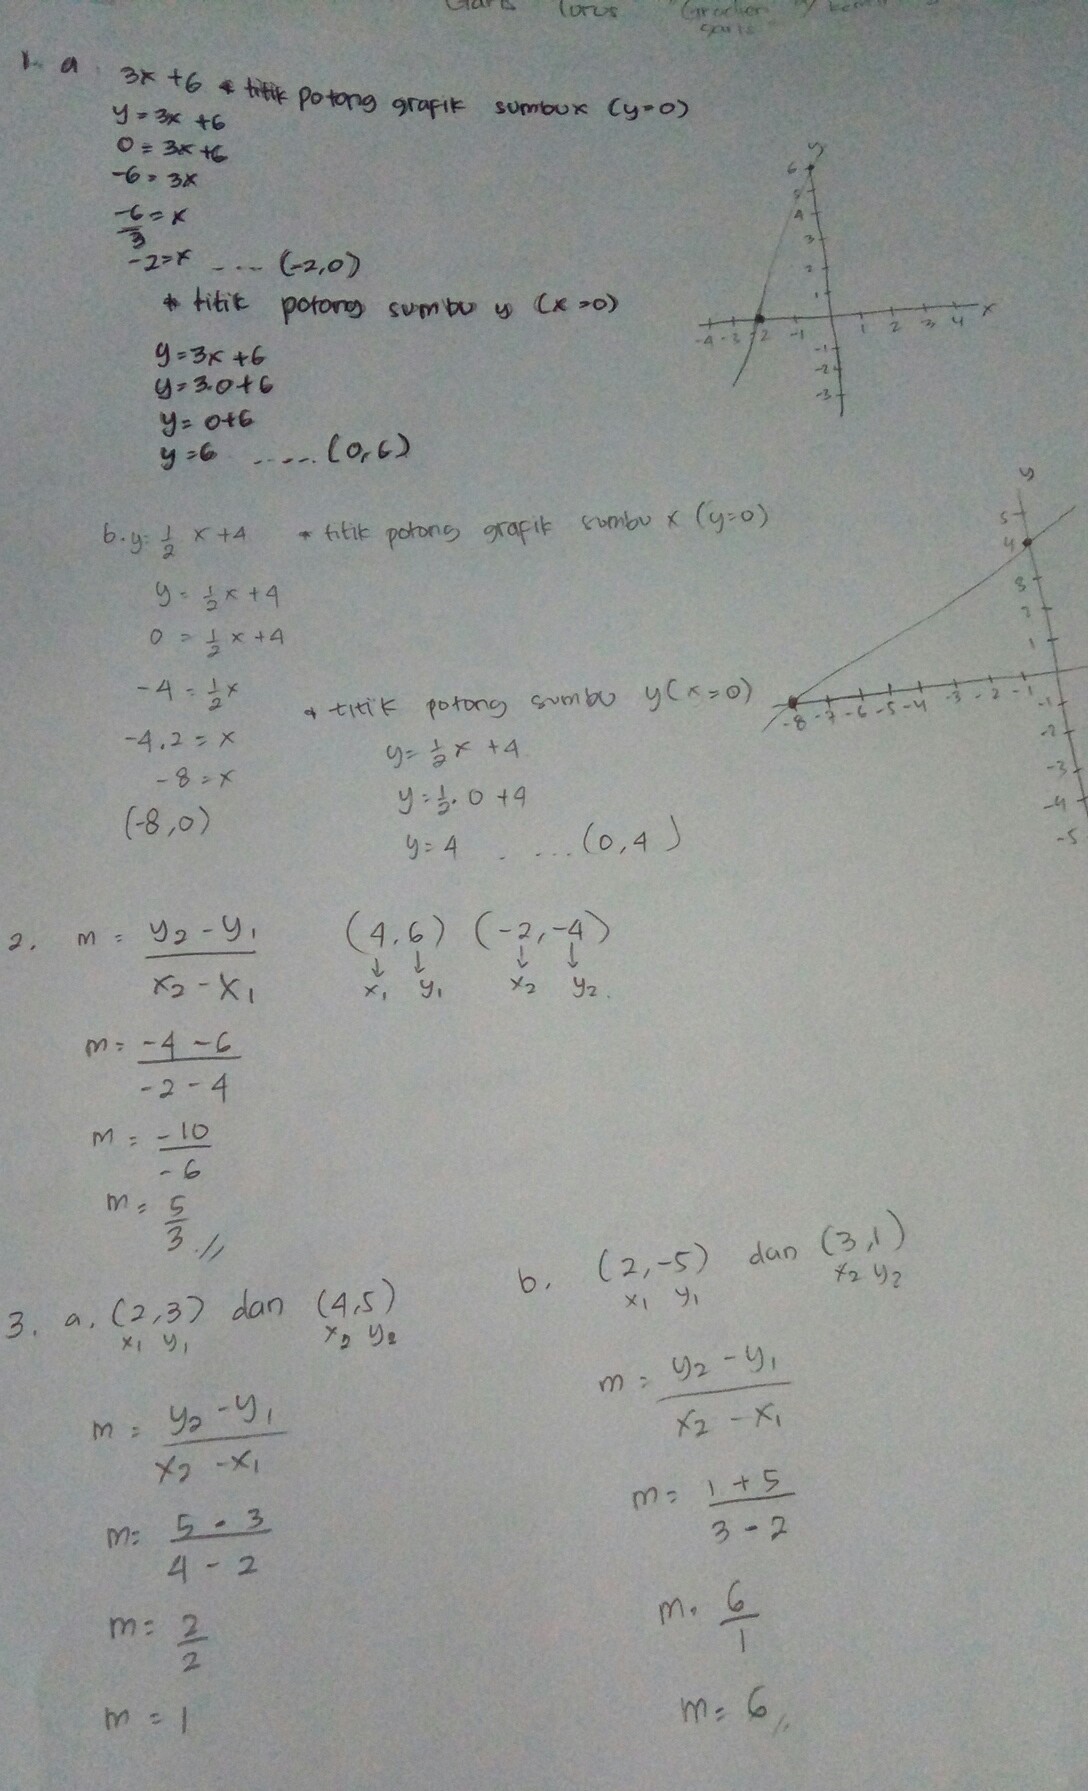 Garis lurus Gradien
garis
1. a. 3x + 6 * titik potong grafik sumbu x (y=0)
y = 3x + 6
0 = 3x + 6
-6 = 3x
-6/3 = x
-2 = x .... (-2,0)
* titik potong sumbu y (x=0)
y = 3x + 6
y = 3.0 + 6
y = 0+6
y = 6 ..... (0,6)
y
6
5
4
3
2
1
-4 -3 -2 -1 1 2 3 4 x
-1
-2
-3
b. y = 1/2 x + 4 * titik potong grafik sumbu x (y=0)
y = 1/2 x + 4
0 = 1/2 x + 4
-4 = 1/2 x
-4.2 = x
-8 = x
(-8,0)
* titik potong sumbu y (x=0)
y = 1/2 x + 4
y = 1/2 . 0 + 4
y = 4 . .... (0,4)
y
5
4
3
2
1
-8 -7 -6 -5 -4 -3 -2 -1
-1
-2
-3
-4
-5
2. m = y2 - y1 / x2 - x1 (4,6) (-2,-4)
↓ ↓ ↓ ↓
x1 y1 x2 y2.
m = -4 - 6 / -2 - 4
m = -10 / -6
m = 5/3 //
3. a. (2,3) dan (4,5)
x1 y1 x2 y2
m = y2 - y1 / x2 - x1
m = 5 - 3 / 4 - 2
m = 2/2
m = 1
b. (2,-5) dan (3,1)
x1 y1 x2 y2
m = y2 - y1 / x2 - x1
m = 1 + 5 / 3 - 2
m = 6/1
m = 6 //